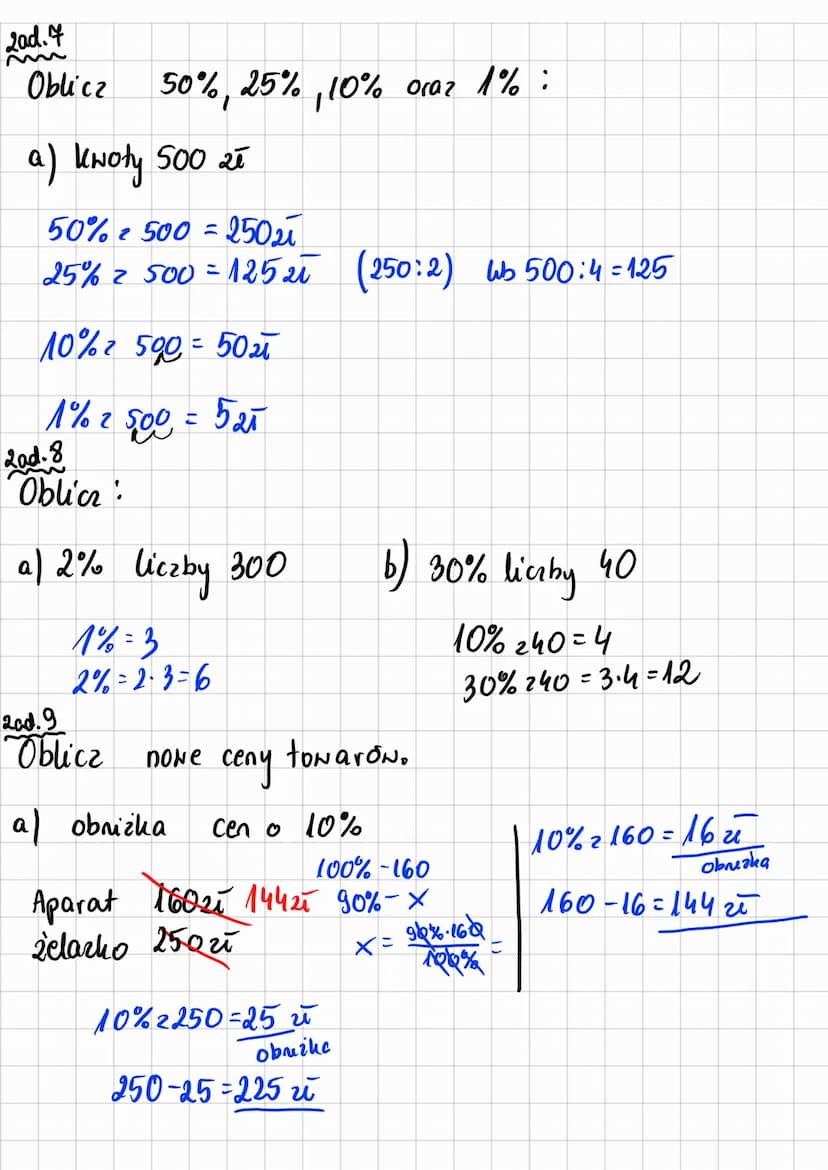 zad.7
Oblicz 50%, 25%, 10% oraz 1% :
a) kwoty 500 zł
50% z 500 = 250 zł
25% z 500 = 125 zł (250:2) lub 500:4 = 125
10% z 500 = 50 zł
1% z 500 = 5 zł
zad.8
Oblicz :
a) 2% liczby 300
1% = 3
2% = 2·3 = 6
b) 30% liczby 40
10% z 40 = 4
30% z 40 = 3·4 = 12
zad.9
Oblicz nowe ceny towarów.
a) obniżka cen o 10%
100% - 160
Aparat 160 zł 144 zł 90% - x
żelazko 250 zł x = 90%·160 / 100% =
10% z 160 = 16 zł
obniżka
160 - 16 = 144 zł
10% z 250 = 25 zł
obniżka
250 - 25 = 225 zł